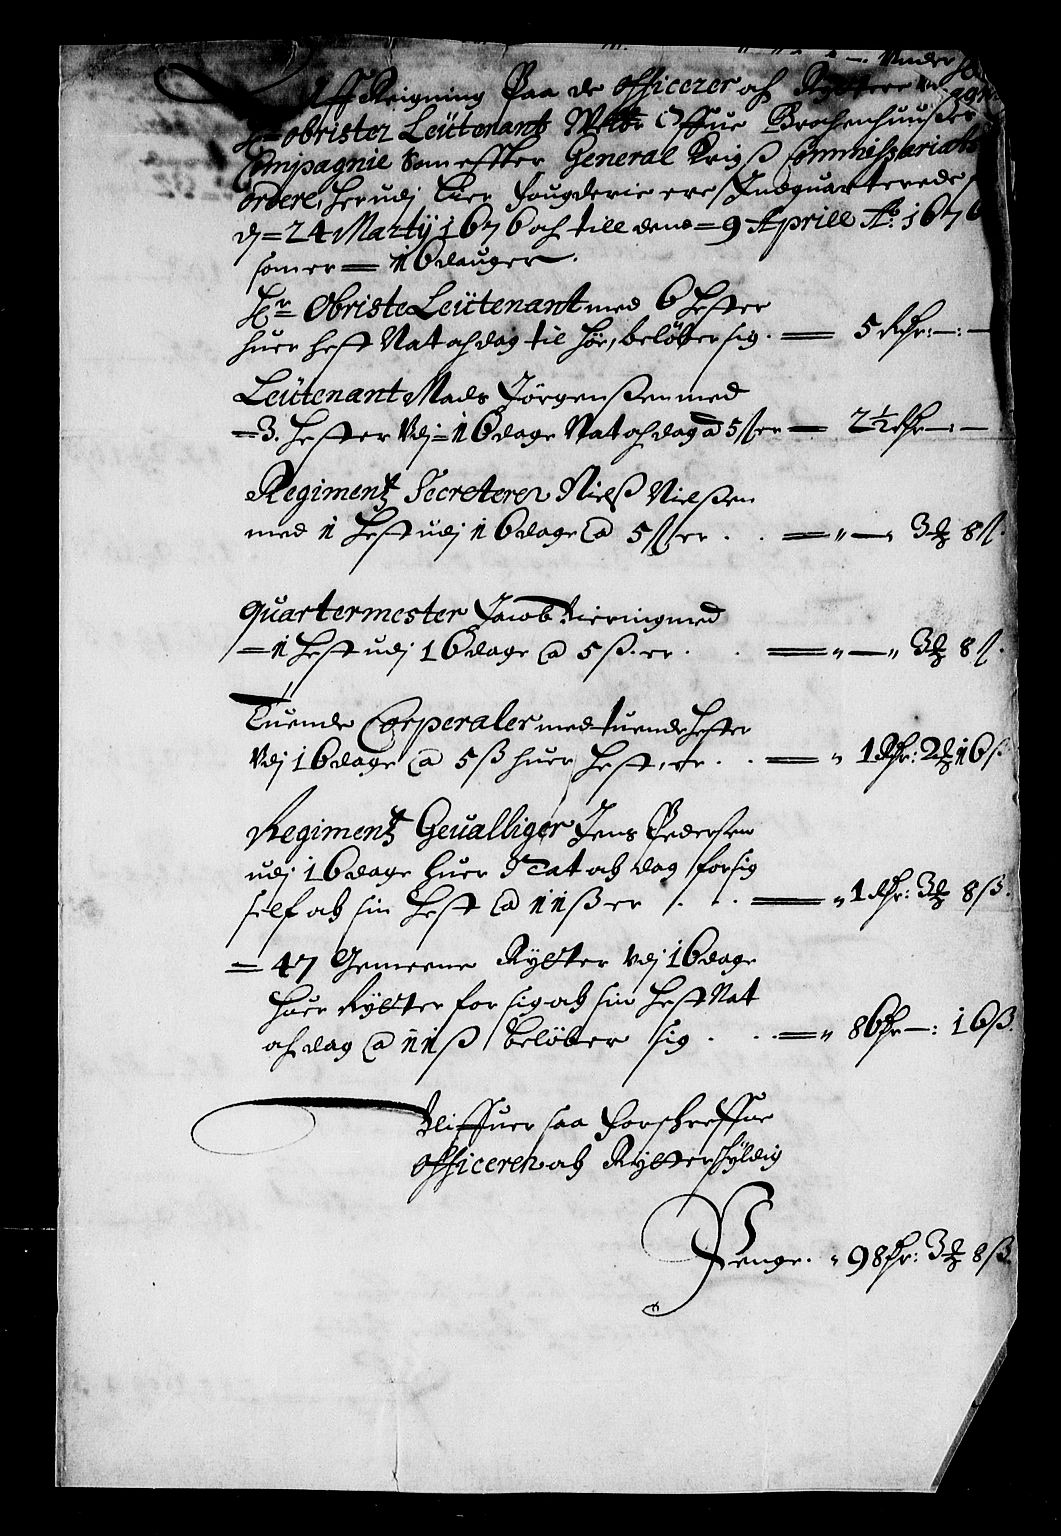 under
Aff Reigning Paa de officerer och Ryttere
Hr obrister Leütenant Welb: Offue Brochenhuuses
Compagnie som effter General Krigß Commissariats
ordere, herudj Lier fougderie ere Indquarterede
d = 24 Martij 1676 och till dend = 9 Aprill Ao. 1676
som er = 16 dauger.
Hr Obriste Leütenant med 6 hester
huer hest Nat och dag til hör, belöber sig. = 5 Rdr: — : —
Leütenant Mads Jörgenßen med
= 3. hester Vdj = 16 dage Nat och dag a 5 ß er = 2½ Rdr — : —
Regimentz Secreterer Nielß Nielßen
med 1 hest udj 16 dage a 5 ß er . . = " — " 3 ꝏ 8 ß.
Quartermester Jacob Viering med
— 1 hest udj 16 dage a 5 ß. er . . = " — " 3 ꝏ 8 ß.
Tuende Corperaler med tuende hester
Vdj 16 dage a 5 ß huer hest, er . . = " 1 Rdr: 2 ꝏ 16 ß
Regimentz Geualliger Jens Pedersen
udj 16 dage huer Nat och dag for sig
self och sin hest a 11 ß er . . = " 1 Rdr: 3 ꝏ 8 ß.
= 47 Gemeene Rytter Vdj 16 dage
huer Rytter for sig och sin hest Nat
och dag a 11 ß beløber sig . . . = " 86 Rdr — : 16 ß.
Bliffuer saa forschreffne
officerer och Rytter schyldig
Penge. " 98 Rdr: 3 ꝏ 8 ß.